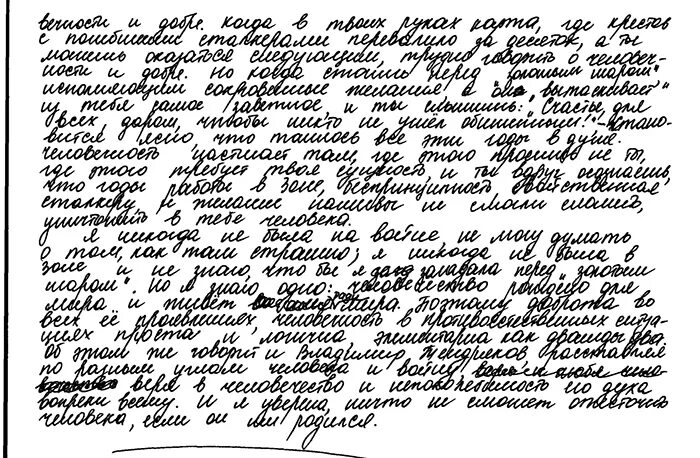 вечности и добре. когда в твоих руках карта, где крестов
с погибшими сталкерами перевалило за десяток, а ты
можешь оказаться следующим, трудно говорить о человеч-
ности и добре. Но когда стоишь перед „золотым шаром"
исполняющим сокровенные желания а он „вытаскивает"
из тебя самое заветное, и ты слышишь: „Счастье для
всех, даром, чтобы никто не ушёл обиженным!" - стано-
вится ясно, что таилось все эти годы в душе.
Человечность настигает там, где этого просишь не ты,
где этого требует твоя сущность, и ты вдруг осознаешь,
что годы работы в Зоне, беспринципность, свойственная
сталкеру и желание наживы не смогли сломить,
уничтожить в тебе человека.
Я никогда не была на войне, не могу думать
о том, как там страшно; я никогда не была в
Зоне и не знаю, что бы я загадала перед „золотым
шаром". Но я знаю одно: человечество рождено для
мира и живёт ради мира. Поэтому доброта во
всех её проявлениях, человечность в противоестественных ситуа-
циях проста и логична, элементарна как дважды два.
Об этом же говорит и Владимир Тендряков расставляя
по разным углам человека и войну,
веря в человечество и непоколебимость его духа
вопреки всему. И я уверена, ничто не сможет ожесточить
человека, если он им родился.